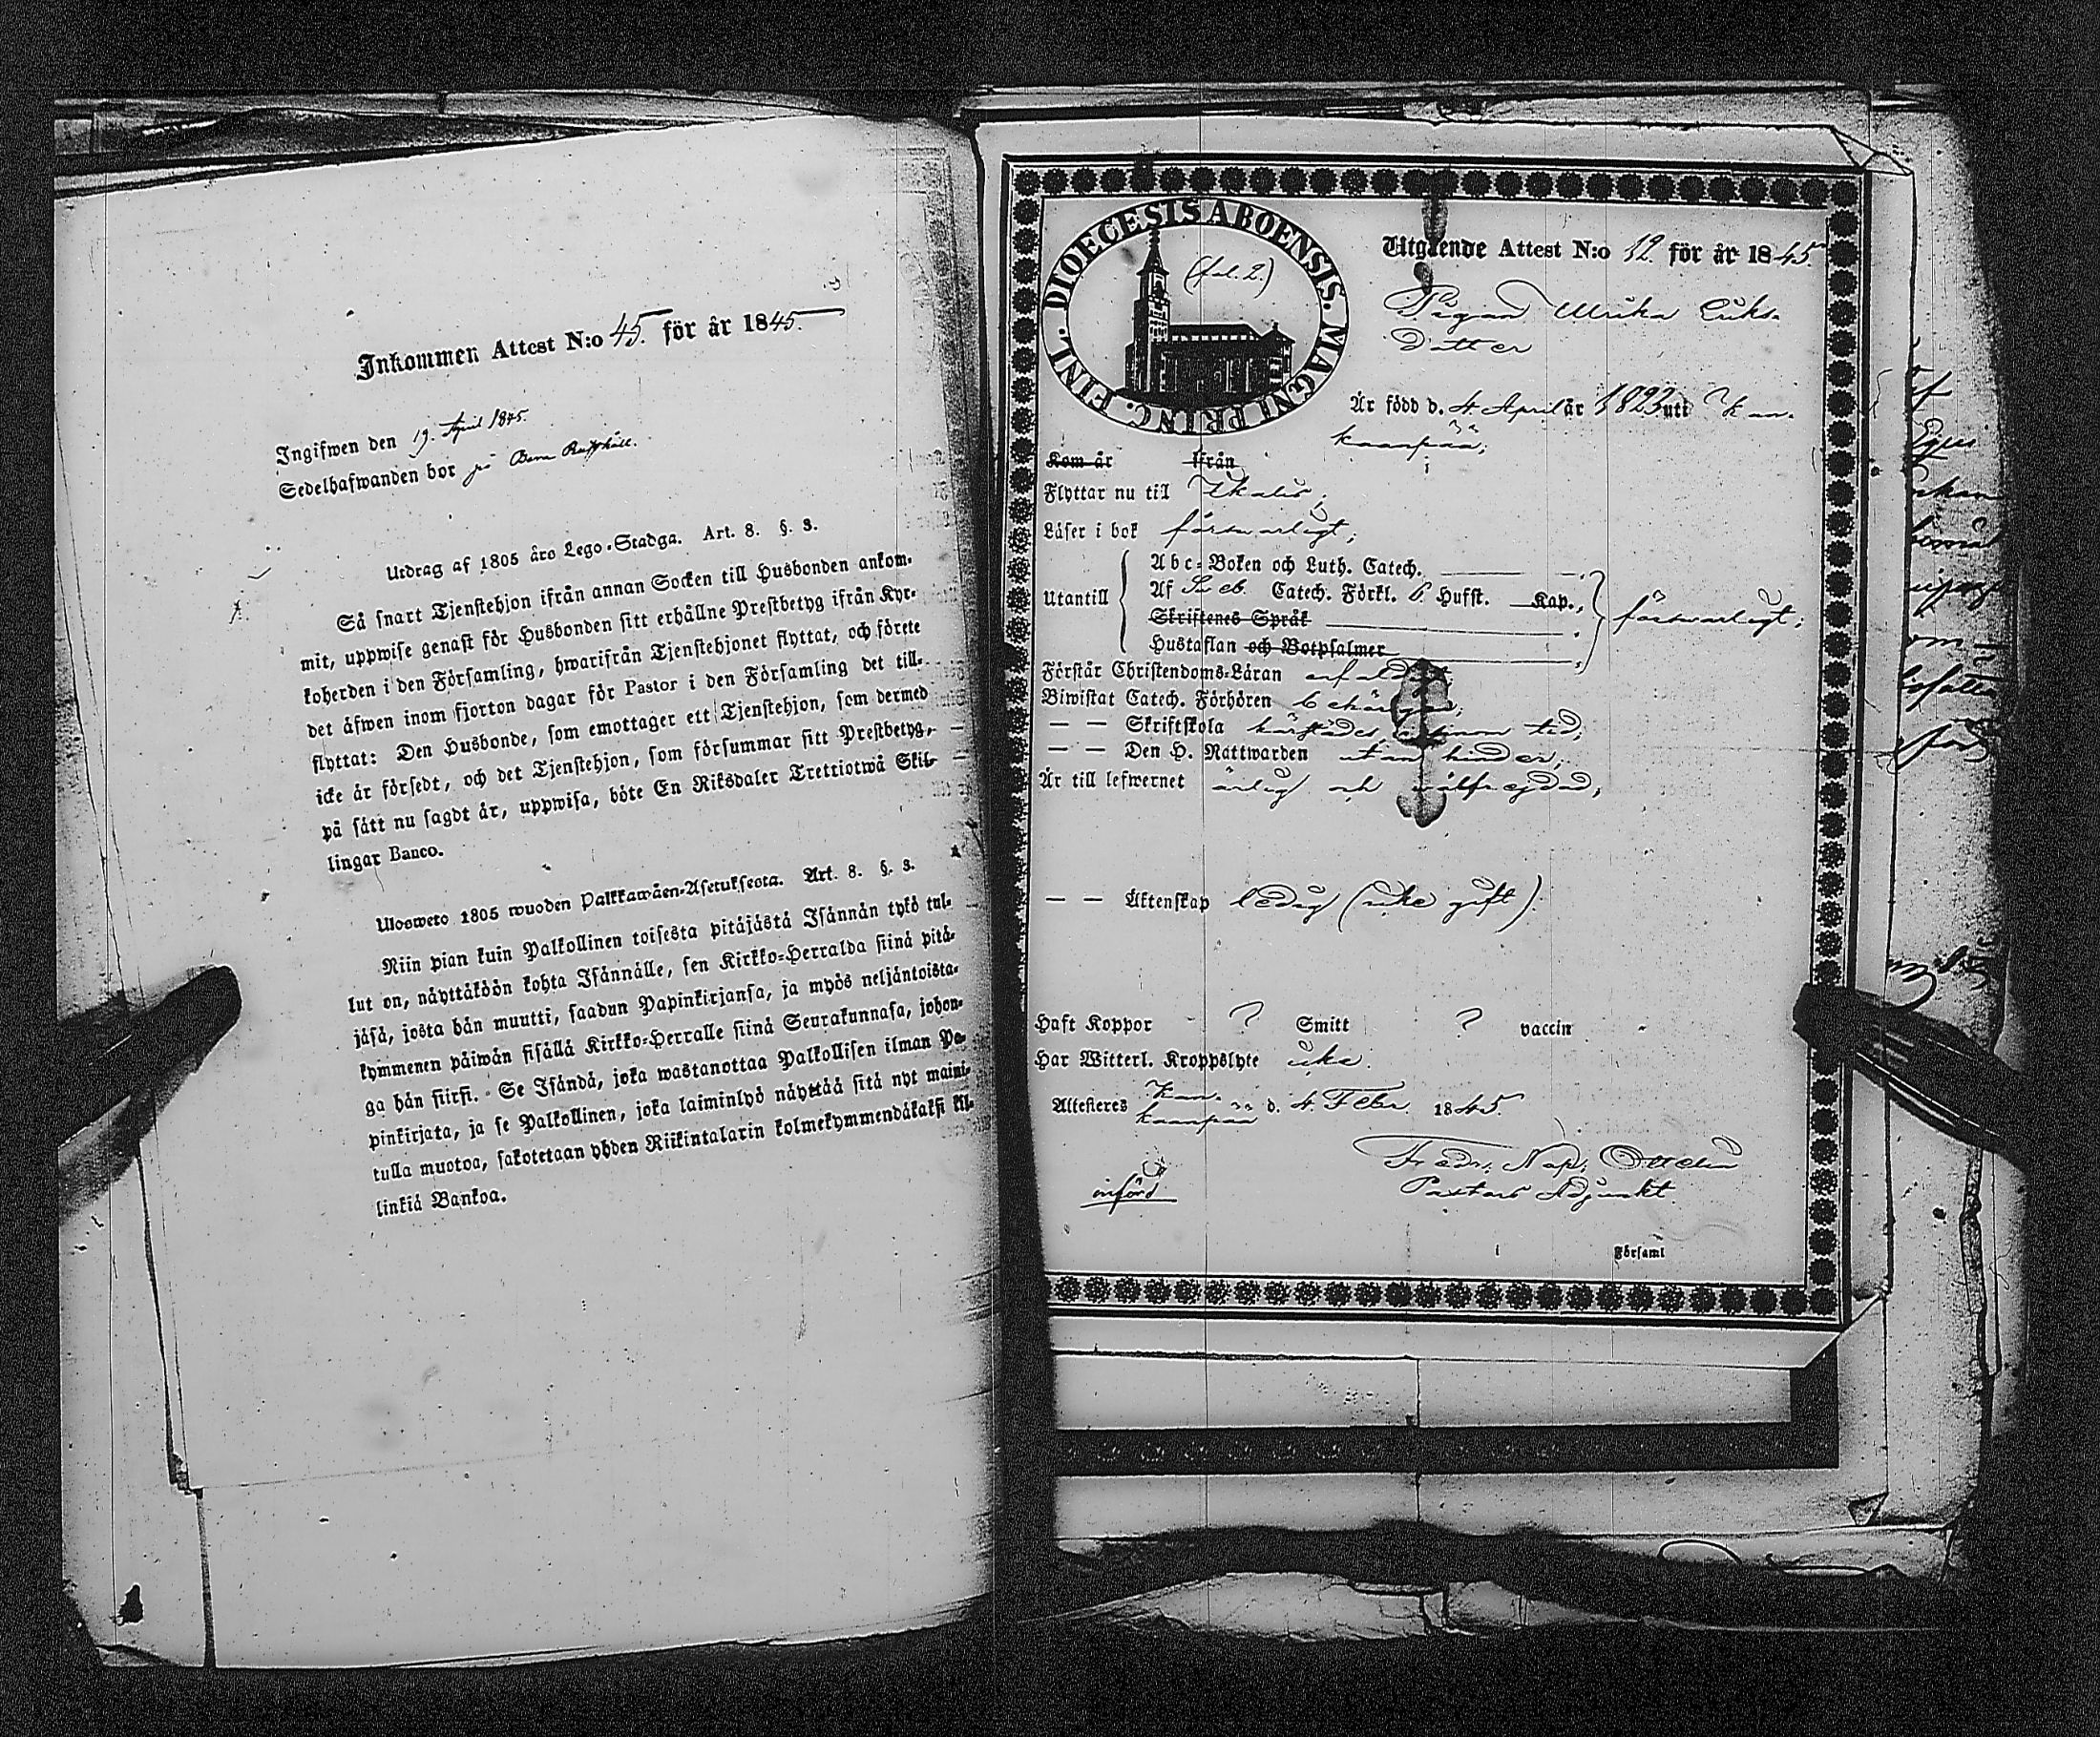 Inkommen Attest N:o 45. för år 1845.
Ingifwen den 19. April 1845.
Sedelhafwanden bor på
Utdrag af 1805 års Lego-Stadga. Art. 8. §. 3.
Så snart Tjenstehjon ifrån annan Socken till Husbonden ankom-
mit, uppwise genast för Husbonden sitt erhållne Prestbetyg ifrån Kyr-
koherden i den Församling, hwarifrån Tjenstehjonet flyttat, och förete
det äfwen inom fjorton dagar för Pastor i den Församling det till-
flyttat: Den Husbonde, som emottager ett Tjenstehjon, som dermed
icke är försedt, och det Tjenstehjon, som försummar sitt Prestbetyg,
på sätt nu sagdt är, uppwisa, böte En Riksdaler Trettiotwå Skil-
lingar Banco.
Ulosweto 1805 wuoden Palkkawäen-Asetuksesta. Art. 8. §. 3.
Niin pian kuin Palkollinen toisesta pitäjästä Isännän tykö tul-
lut on, näyttäköön kohta Isännälle, sen Kirkko-Herralda siinä pitä-
jäsä, josta hän muutti, saadun Papinkirjansa, ja myös neljäntoista-
kymmenen päiwän sisällä Kirkko-Herralle siinä Seurakunnasa, johon-
ga hän siirsi. Se Isändä, joka wastanottaa Palkollisen ilman Pa-
pinkirjata, ja se Palkollinen, joka laiminlyö näyttää sitä nyt maini-
tulla muotoa, sakotetaan yhden Riikintalarin kolmekymmendäkaksi kil-
linkiä Bankoa.
DIOECESIS ABOENSIS. MAGNI PRINC. FINL.
(fol. 2.)
Utgående Attest N:o 12. för år 1845.
Pigan Ulrika Eriks
Dotter
Är född d. 4 April år 1823 uti Kan-
kaanpää;
Kom år ifrån
Flyttar nu till Ikalis;
Läser i bok förswarligt;
Utantill
Abc-Boken och Luth. Catech.
Af Sv eb. Catech. Förkl. Husst. Kap.,
Skriftenes Språk
Hustaflan och Botpsalmer
förswarligt;
Förstår Christendoms-Läran enfaldigt,
Biwistat Catech. Förhören behörigen,
— — Skriftskola
— — Den H. Nattwarden utan hinder;
Är till lefwernet ärlig och wälfrejdad,
— — Äktenskap ledig (icke gift).
Haft Koppor ? Smitt ? vaccin
Har Witterl. Kroppslyte icke.
Attesteres Kan-
kaanpää d. 4. Febr. 1845.
Fredr. Nap. Ottelin
Pastors Adjunkt.
införd
Församl